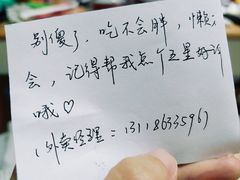 别傻了，吃不会胖，懒
会，记得帮我点个五星好评
哦♡
(外卖经理：13118633596)